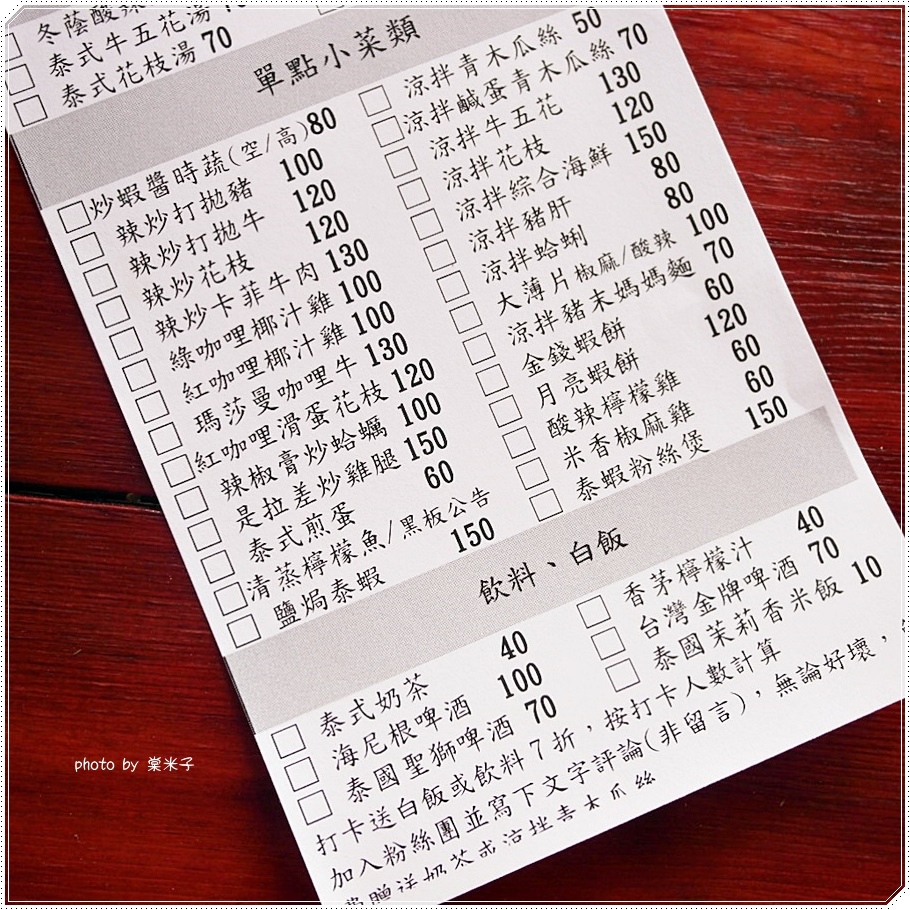 冬蔭酸辣
泰式牛五花湯
泰式花枝湯 70
單點小菜類
炒蝦醬時蔬(空/高)80
辣炒打拋豬 100
辣炒打拋牛 120
辣炒花枝 120
辣炒卡菲牛肉 130
綠咖哩椰汁雞 100
紅咖哩椰汁雞 100
瑪莎曼咖哩牛 130
紅咖哩滑蛋花枝 120
辣椒膏炒蛤蠣 100
是拉差炒雞腿 150
泰式煎蛋 60
清蒸檸檬魚/黑板公告
鹽焗泰蝦 150
涼拌青木瓜絲 50
涼拌鹹蛋青木瓜絲 70
涼拌牛五花 130
涼拌花枝 120
涼拌綜合海鮮 150
涼拌豬肝 80
涼拌蛤蜊 80
大薄片椒麻/酸辣 100
涼拌豬末媽媽麵 70
金錢蝦餅 60
月亮蝦餅 120
酸辣檸檬雞 60
米香椒麻雞 60
泰蝦粉絲煲 150
飲料、白飯
泰式奶茶 40
海尼根啤酒 100
泰國聖獅啤酒 70
香茅檸檬汁 40
台灣金牌啤酒 70
泰國茉莉香米飯 10
打卡送白飯或飲料7折，按打卡人數計算
加入粉絲團並寫下文字評論(非留言)，無論好壞，
photo by 棠米子